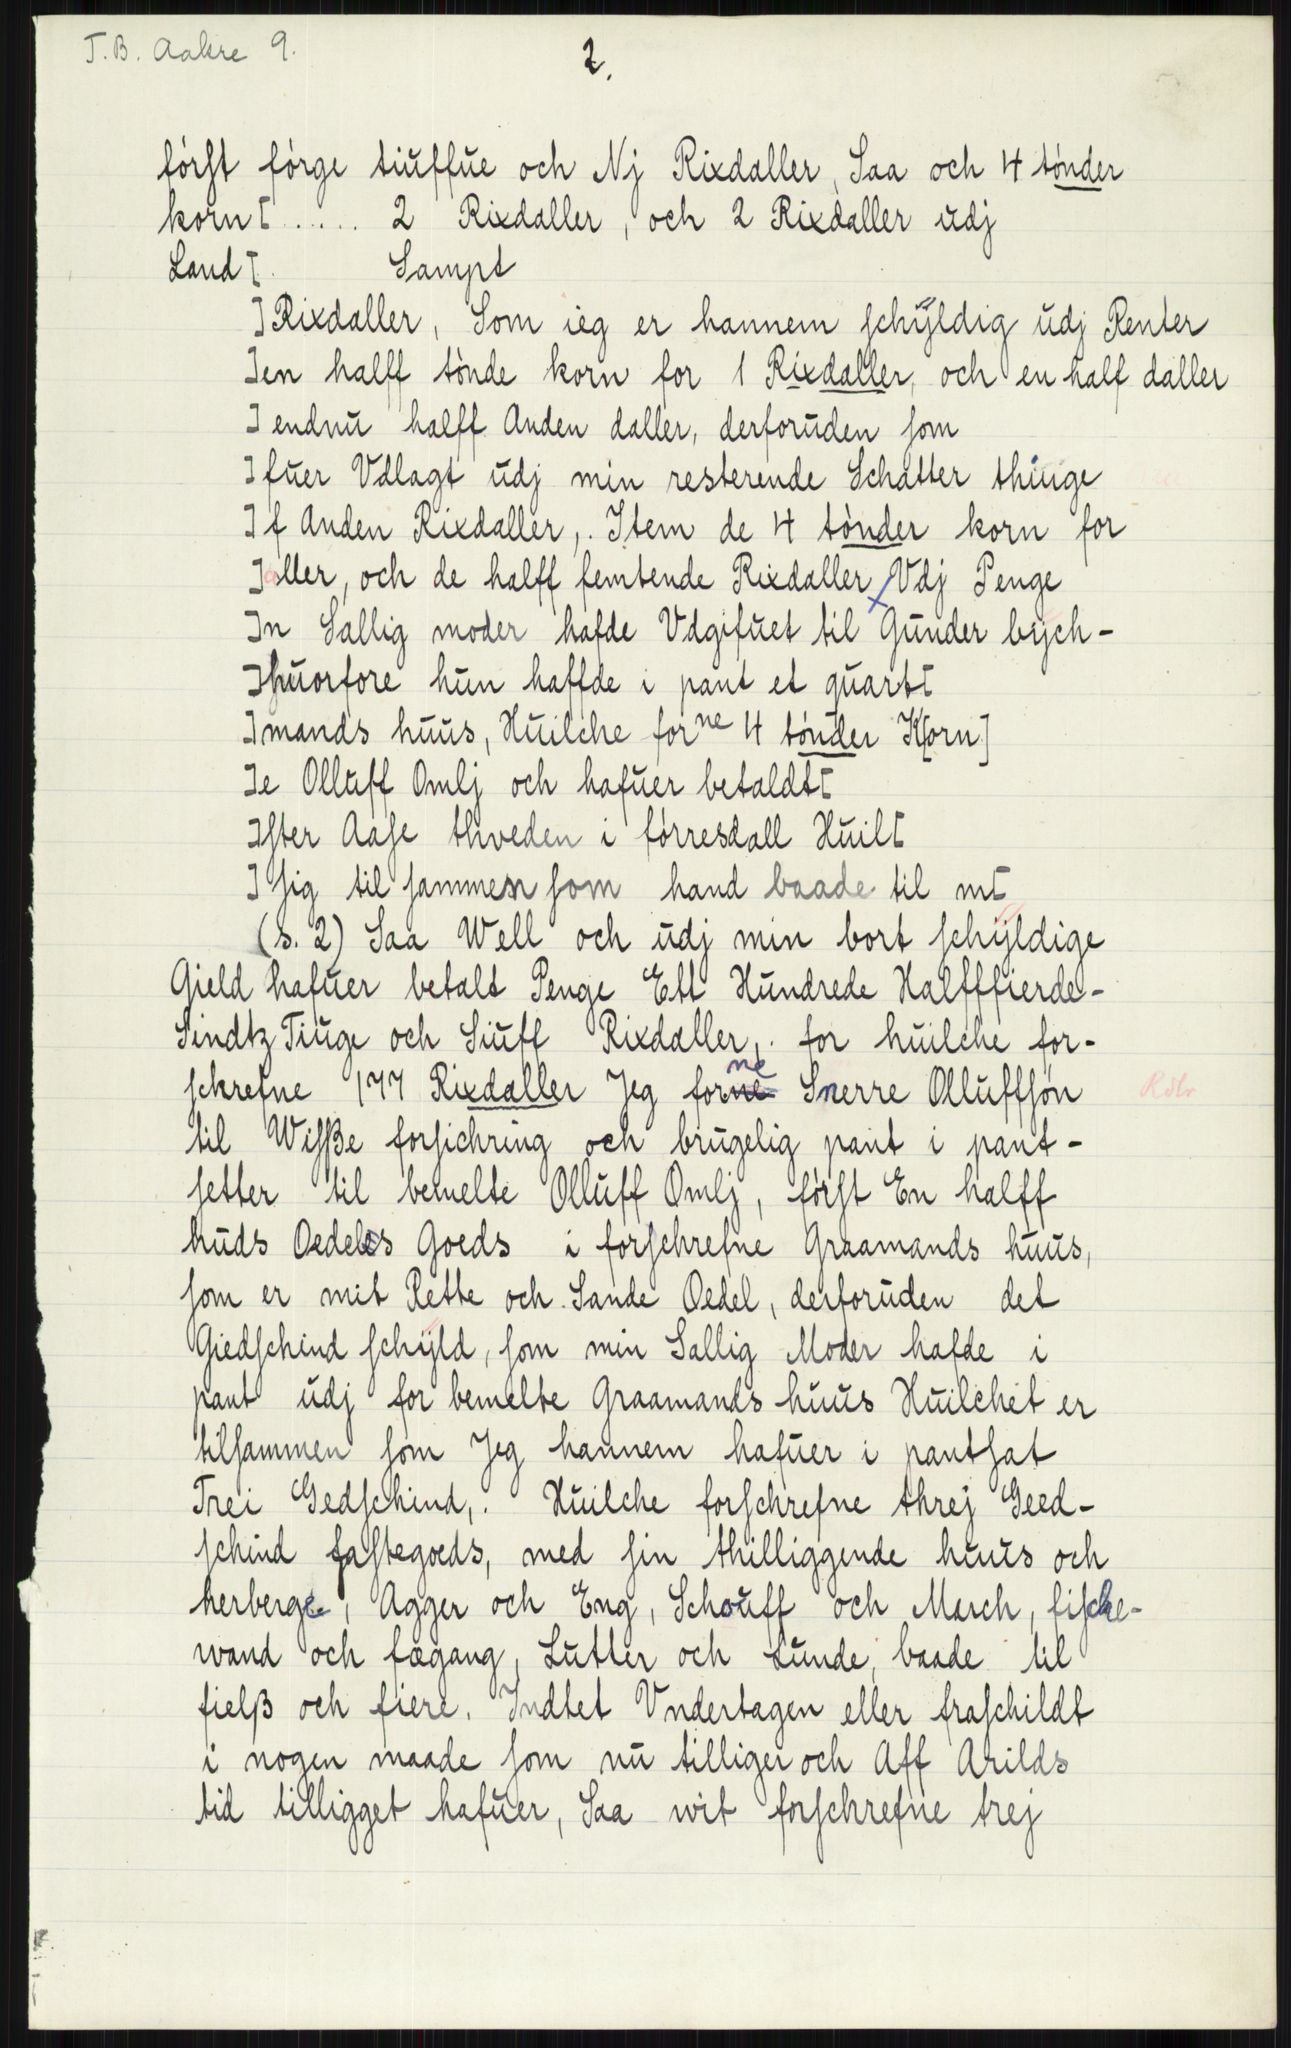 T.B. Aakre 9.
2.
først førge tiuffue och Nj Rixdaller, Saa och 4 tønder
korn[ ..... 2 Rixdaller, och 2 Rixdaller udj
Land[. Sampt
]Rixdaller, Som ieg er hannem schÿldig udj Renter
]en halff tønde korn for 1 Rixdaller, och en half daller
] endnu halff Anden daller, derforuden som
]fuer Vdlagt udj min resterende Schatter thiuge
]f Anden Rixdaller,. Item de 4 tønder korn for
]aller, och de halff femtende Rixdaller Vdj Penge
]n Sallig moder hafde Vdgifuet til Gunder bych-
]huorfore hun haffde i pant et quart[
]mands huus, Huilche forne 4 tønder K[orn]
]e Olluff Omlj och hafuer betaldt[
]fter Aase thveden i førresdall Huil[
] sig til sammen som hand baade til m[
(s. 2) Saa Well och udj min bort schÿldige
Gield hafuer betalt Penge Ett Hundrede Halfffierde-
Sindtz Tiuge och Siuff Rixdaller,. for huilche for-
schrefne 177 Rixdaller Jeg forne Snerre Olluffsøn
Rdlr
til Wisße forsichring och brugelig pant i pant-
setter til bemelte Olluff Omlj, først En halff
huds Oedels Goeds i forschrefne Graamands huus,
som er mit Rette och Sande Oedel, derforuden det
Giedschind schÿld, som min Sallig Moder hafde i
pant udj for bemelte Graamands huus Huilchet er
tilsammen som Jeg hannem hafuer i pantsat
Trei Gedschind,. Huilche forschrefne threj Geed-
schind fastegoeds, med sin thilliggende huus och
herberge, Agger och Eng, Schouff och March, fische-
wand och fægang, Lutter och Lunde, baade til
fielß och fiere. Indtet Vndertagen eller fraschildt
i nogen maade som nu tilliger och Aff Arilds
tid tilligget hafuer, Saa wit forschrefne trej